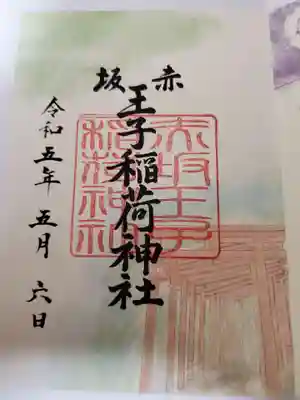 赤坂
王子稲荷神社
令和五年 五月 六日
赤坂王子
稲荷神社